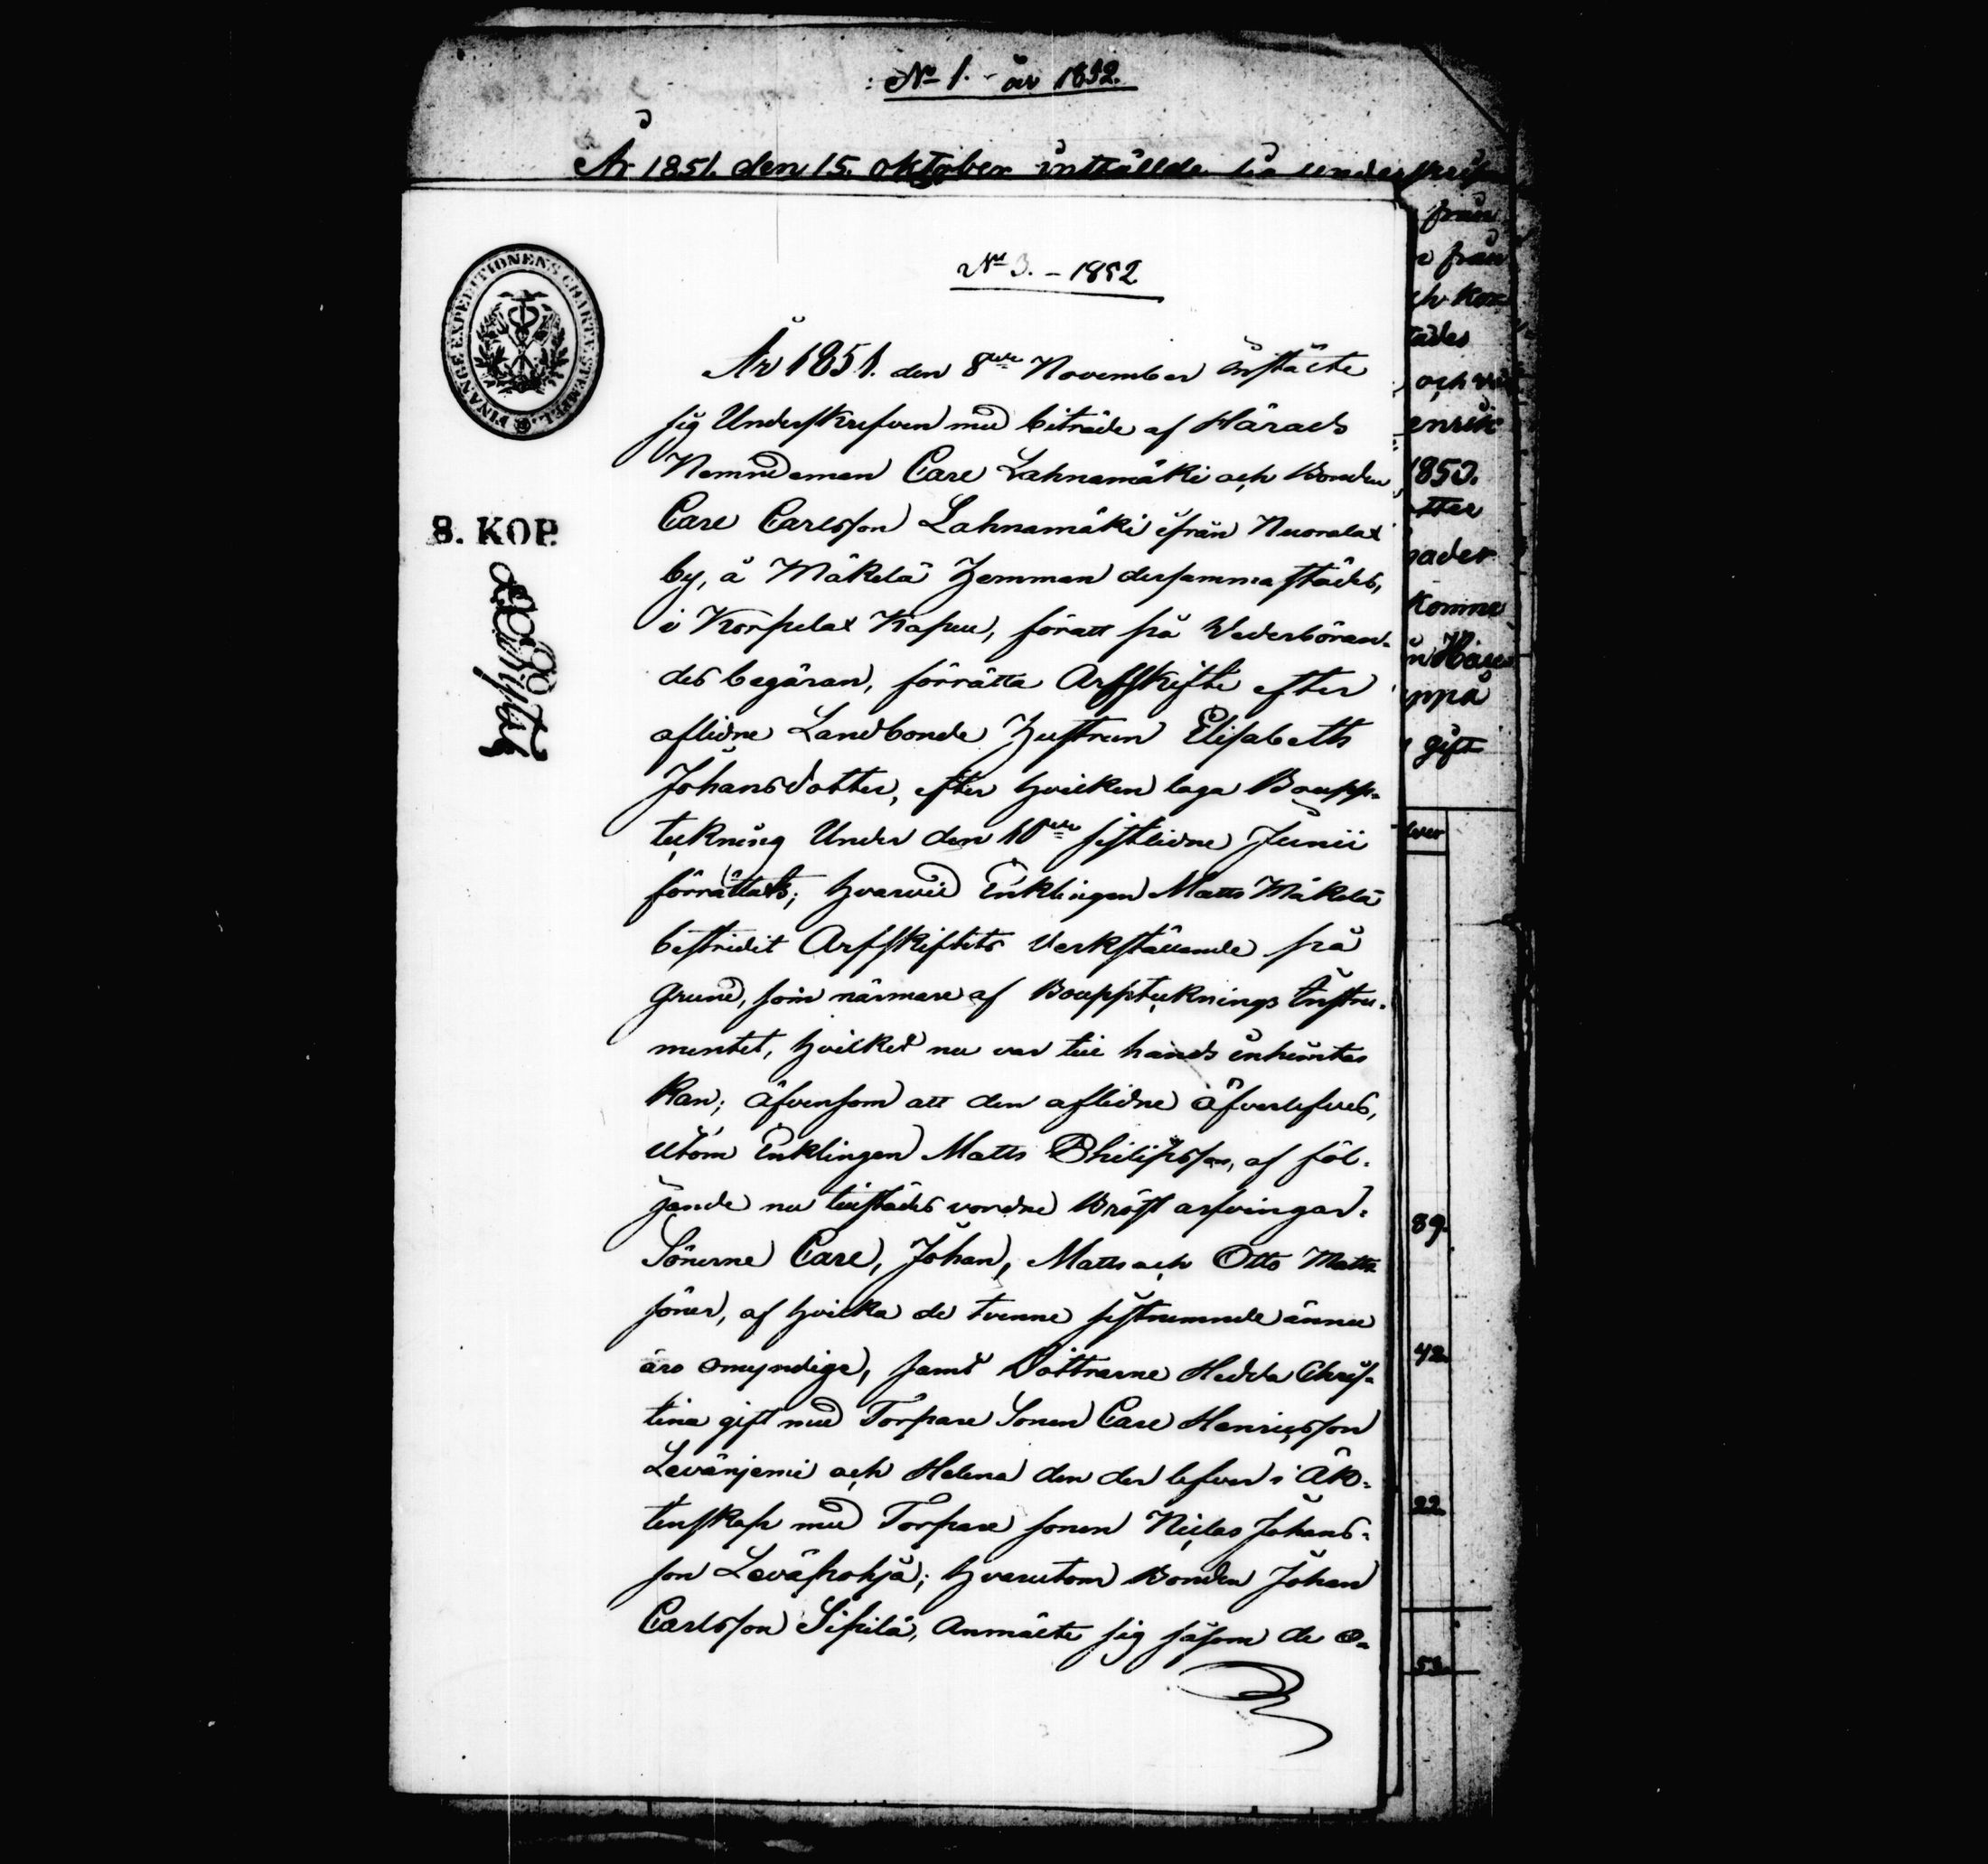 No 1. - år 1852.
År 1851. den 15. Oktober inställde sig underskrifne
No 3. - 1852
FINANCE EXPEDITIONENS CHARTÆ STEMPEL.
8. KOP.
År 1851. den 8de November instälte
sig Underskrefven med biträde af Härads
Nemndeman Carl Lahnamäki och Bonden
Carl Carlsson Lahnamäki ifrån Nuoralax
by, å Mäkelä Hemman dersammastädes,
i Korpelax Kapell,föratt på Wederböran-
des begäran, förrätta Arfskifte efter
aflidne Landbonde Hustrun Elisabeth
Johansdotter, efter hvilken laga Boupp-
teckning Under den 10de sistlidne Junii
förrättats; hvarvid Enklingen Matts Mäkelä
bestridit Arfskiftets Verkställande på
grund, som närmare af Bouppteknings Instru-
mentet, hvilket nu var till hands inhämtas
kan; äfvensom att den aflidne äfverlefves,
utom Enklingen Matts Philipsson, af föl-
jande nu tillstädes vordne Bröst arfvingar.
Sönerne Carl, Johan, Matts och Otto Matts
söner, af hvilka de tvenne sistnemnde ännu
äro omyndige, samt Döttrarne Hedda Chris-
tina gift med Torpare Sonen Carl Henricsson
Levänjemi och Helena den der lefver i Äk-
tenskap med Torpare sonen Niclas Johans-
son Leväpohja; hvarutom Bonden Johan
Carlsson Sipilä, Anmälte sig såsom de o-
från
från
ch Kor
tades
och
enrik
1850.
otter
komme
uppå
gift
89.
42.
22.
53.